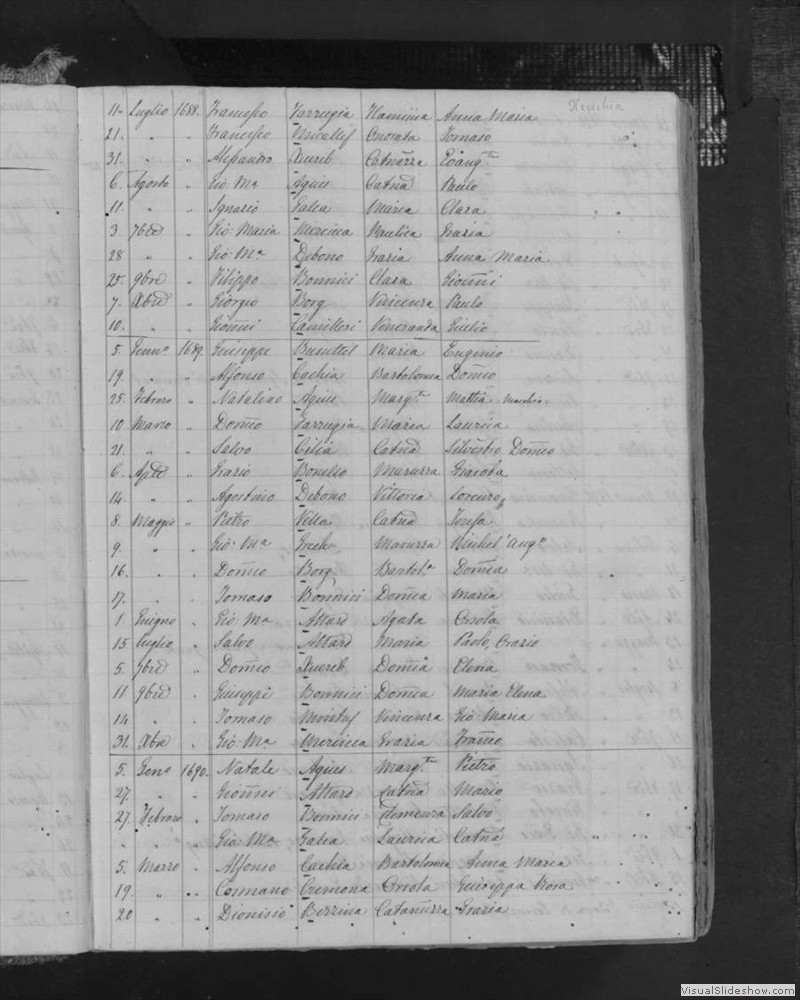 11 Luglio 1688. Francesco Farrugia Flaminia Anna Maria
21. " " Francesco Micallef Onorata Tomaso
31. " " Alessandro Xuereb Catarra Evang.ta
6. Agosto " Gio: Ma Agius Catña Paulo
11. " " Ignazio Galea Maria Clara
3. 7bre " Gio: Maria Mercieca Paulica Grazia
28 " " Gio: Ma Debono Grazia Anna Maria
25. 9bre " Filippo Bonnici Clara Gioñni
7. Xbre " Giorgio Borg Vincenza Paulo
10. " " Gioñni Camilleri Veneranda Giulio
5. Genno. 1689. Giuseppe Busuttil Maria Eugenio
19. " " Alfonso Cachia Bartolomea Doñico
25. Febraro " Natalizio Agius Marg.ta Mattia
10 Marzo " Doñico Farrugia Maria Laurica
21. " " Salvo Cilia Catña Silvestro Doñico
6. Aple " Grazio Bonello Maruzza Giacoba
14. " " Agostino Debono Vittoria Lorenzo
8. Maggio " Pietro Vella Catña Josefa
9. " " Gio: Ma Grech Maruzza Michel' Ang.o
16. " " Doñico Borg Bartol.a Doñica
17. " " Tomaso Bonnici Doñica Maria
1 Giugno " Gio: Ma Attard Agata Orsola
15 Luglio " Salvo Attard Maria Paolo, Orazio
5. 7bre " Doñico Xuereb Doñica Elena
11 9bre " Giuseppe Bonnici Doñica Maria Elena
14. " " Tomaso Vincenza Gio Maria
31. Xbre " Gio: Ma Mercieca Grazia Franco
5. Geno 1690. Natale Agius Marg.ta Pietro
27. " " Gioñni Attard Catña Mario
27. Febraro " Tomaso Bonnici Clemenza Salvo
" " " Gio: Ma Galea Laurica Catña
5. Marzo " Alfonso Cachia Bartolomea Anna Maria
19. " " Cosmano Cremona Orsola Giuseppa Rosa
20 " " Dionisio Bezzina Catarruzza Grazia
VisualSlideshow.com